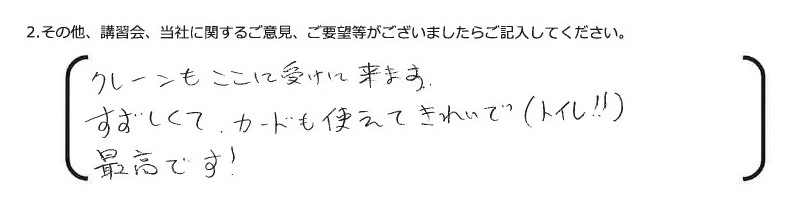 2.その他、講習会、当社に関するご意見、ご要望等がございましたらご記入してください。
クレーンもここに受けに来ます.
すずしくて、カードも使えてきれいで(トイレ!!)
最高です!